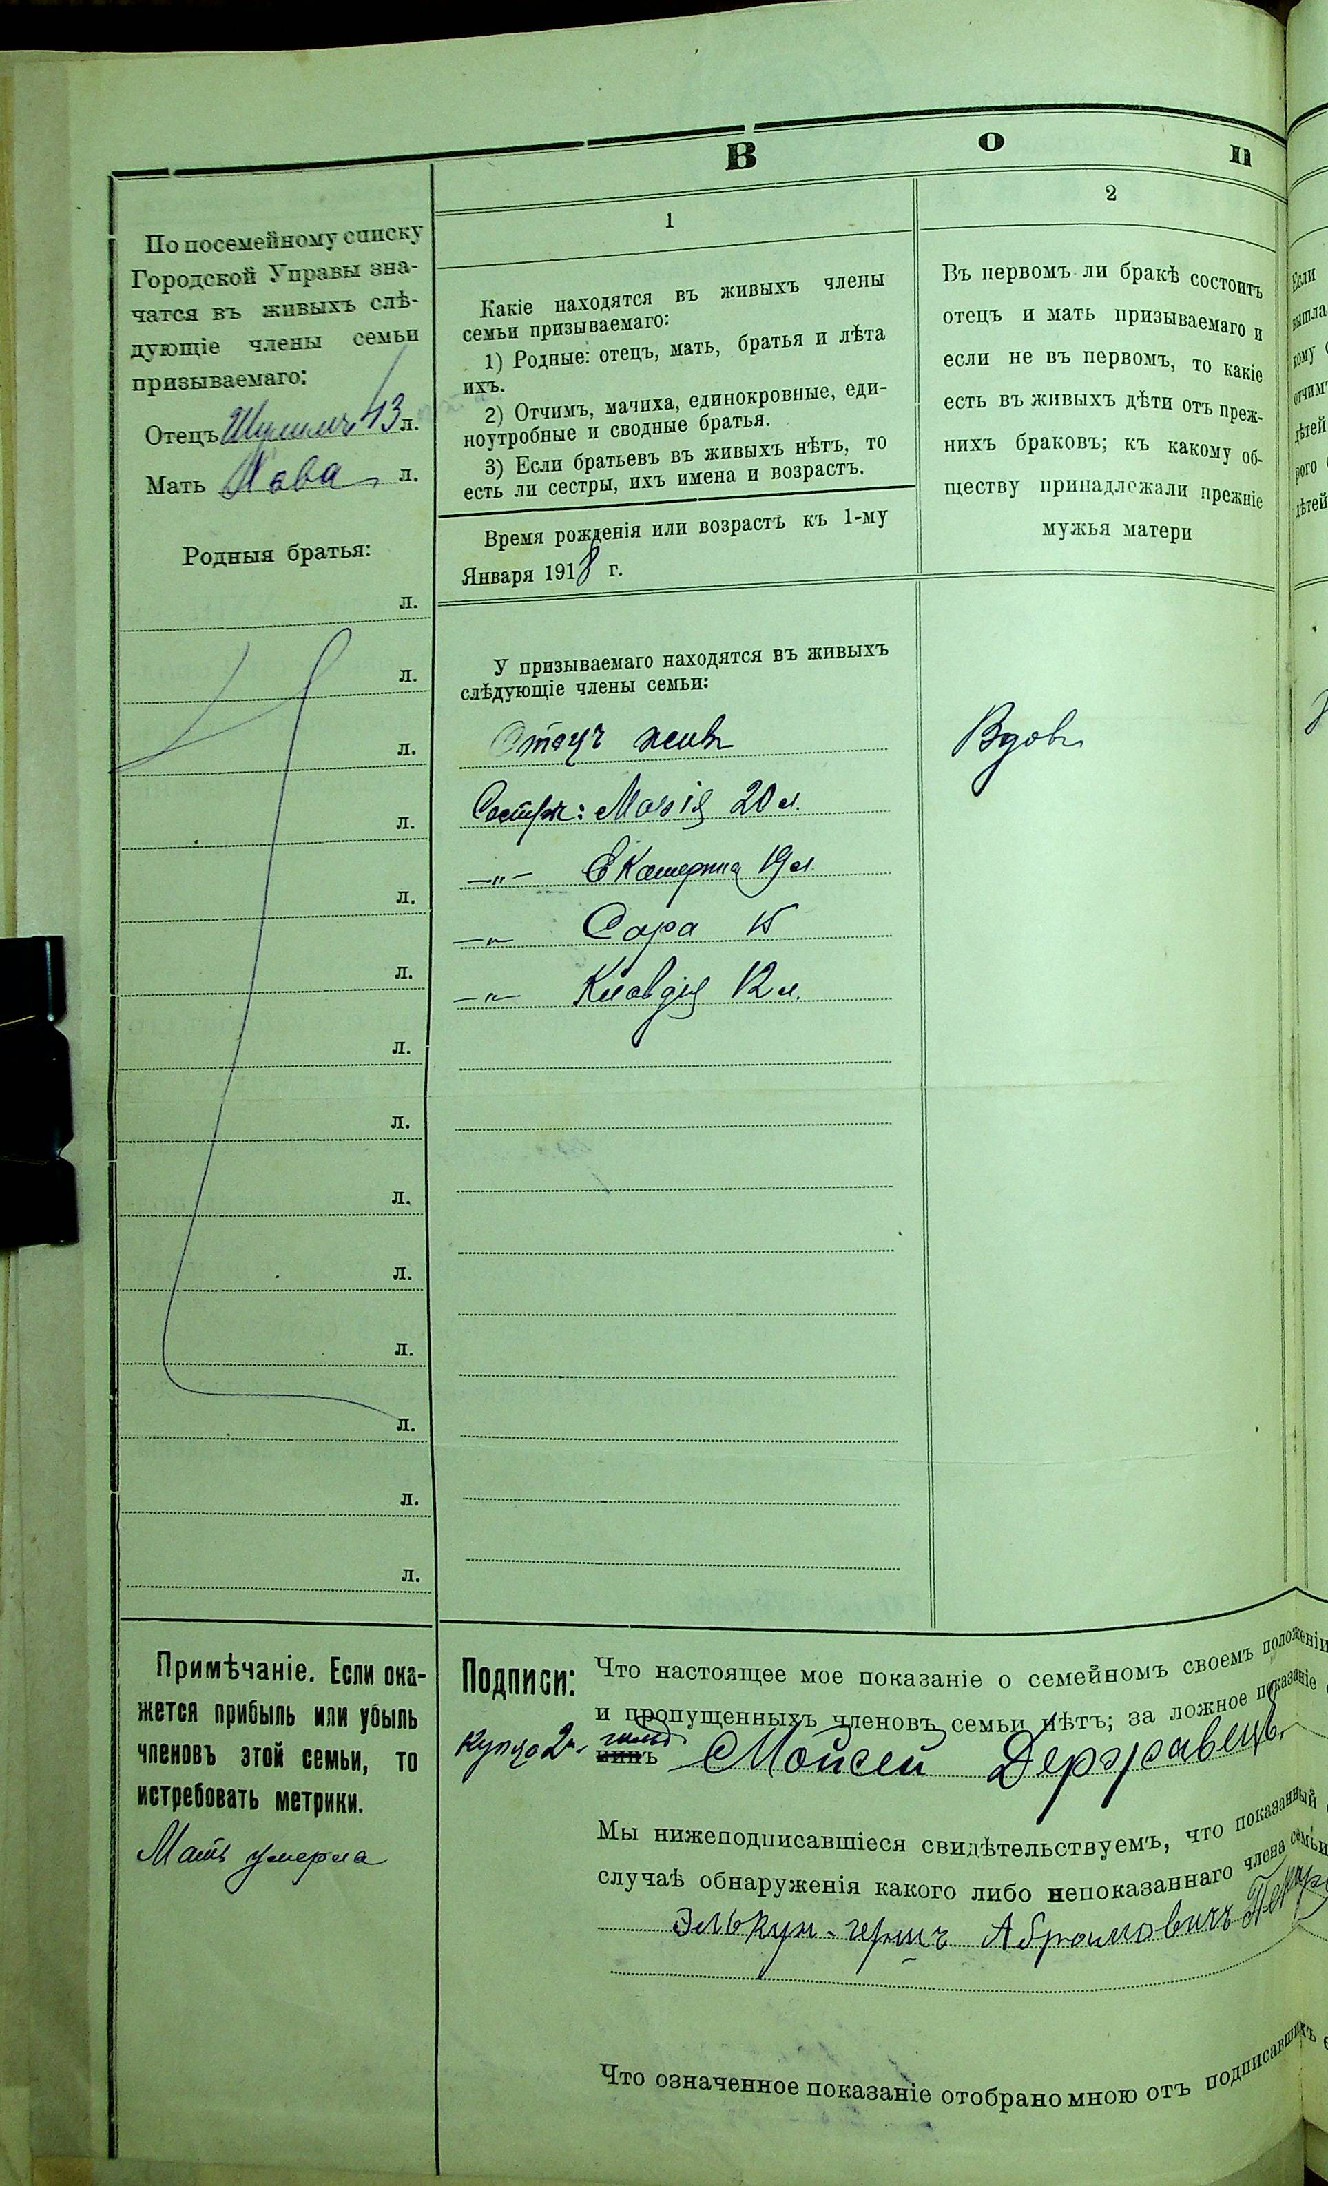 В о п
По посемейному списку
Городской Управы зна-
чатся въ живыхъ слѣ-
дующіе члены семьи
призываемаго:
Отецъ Шулимъ 43 л.
Мать Хава л.
Родныя братья:
л.
л.
л.
л.
л.
л.
л.
л.
л.
л.
л.
л.
л.
л.
1
Какіе находятся въ живыхъ члены
семьи призываемаго:
1) Родные: отецъ, мать, братья и лѣта
ихъ.
2) Отчимъ, мачиха, единокровные, еди-
ноутробные и сводные братья.
3) Если братьевъ въ живыхъ нѣтъ, то
есть ли сестры, ихъ имена и возрастъ.
Время рожденія или возрастъ къ 1-му
Января 1918 г.
У призываемаго находятся въ живыхъ
слѣдующіе члены семьи:
Отецъ живъ
Сестры: Марія 20 л.
—"— Екатерина 19 л.
—"— Сара 15
—"— Клавдія 12 л.
2
Въ первомъ ли бракѣ состоитъ
отецъ и мать призываемаго и
если не въ первомъ, то какіе
есть въ живыхъ дѣти отъ преж-
нихъ браковъ; къ какому об-
ществу принадлежали прежніе
мужья матери
Вдовъ
Примѣчаніе. Если ока-
жется прибыль или убыль
членовъ этой семьи, то
истребовать метрики.
Мать умерла
Подписи: Что настоящее мое показаніе о семейномъ своемъ положеніи
и пропущенныхъ членовъ семьи нѣтъ; за ложное показаніе
купец 2й гильд Мойсей Державецъ
Мы нижеподписавшіеся свидѣтельствуемъ, что показанный
случаѣ обнаруженія какого либо непоказаннаго члена семьи
Элькун-герш Абрамовичъ
Что означенное показаніе отобрано мною отъ подписавшихъ